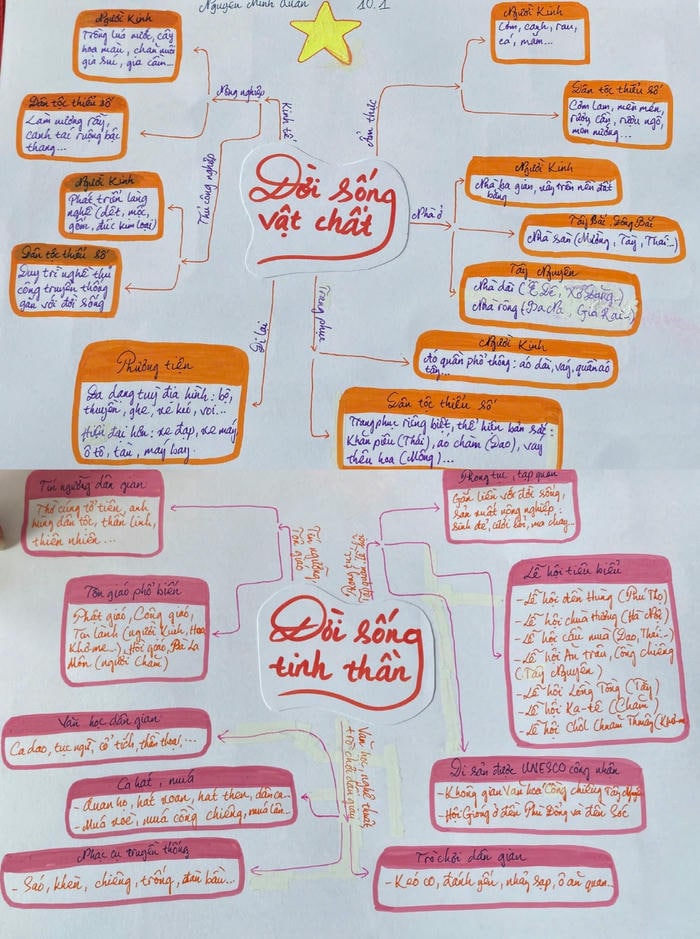 Nguyễn Minh Quân 10.1
Người Kinh
Trồng lúa nước, cây
hoa màu, chăn nuôi
gia súc, gia cầm...
Dân tộc thiểu số
Làm nương rẫy,
canh tác ruộng bậc
thang...
Nông nghiệp
Kinh tế
Người Kinh
Phát triển làng
nghề (dệt, mộc,
gốm, đúc kim loại)
Dân tộc thiểu số
Duy trì nghề thủ
công truyền thống
gắn với đời sống
Thủ công nghiệp
Đời sống
vật chất
Ẩm thực
Người Kinh
Cơm, canh, rau,
cá, mắm...
Dân tộc thiểu số
Cơm lam, mèn mén,
rượu cần, rượu ngô,
men nướng...
Nhà ở
Người Kinh
Nhà ba gian, xây trên nền đất
bằng
Tây Bắc, Đông Bắc
Nhà sàn (Mường, Tày, Thái...)
Tây Nguyên
Nhà dài (Ê Đê, Xơ Đăng...)
Nhà rông (Ba Na, Gia Rai...)
Trang phục
Người Kinh
Áo quần phổ thông: áo dài, váy, quần áo
tây...
Dân tộc thiểu số
Trang phục riêng biệt, thể hiện bản sắc:
Khăn piêu (Thái), áo chàm (Dao), váy
thêu hoa (Mông)...
Đi lại
Phương tiện
Đa dạng tuỳ địa hình: bộ,
thuyền, ghe, xe kéo, voi...
Hiện đại hơn: xe đạp, xe máy
ô tô, tàu, máy bay.
Tín ngưỡng dân gian
Thờ cúng tổ tiên, anh
hùng dân tộc, thần linh,
thiên nhiên...
Tôn giáo phổ biến
Phật giáo, Công giáo,
Tin Lành (người Kinh, Hoa
Khơ-me...) Hồi giáo, Bà La
Môn (người Chăm)
Tín ngưỡng,
Tôn giáo
Đời sống
tinh thần
Phong tục,
Phong tục, tập quán
Gắn liền với đời sống,
sản xuất nông nghiệp,:
sinh đẻ, cưới hỏi, ma chay...
Lễ hội tiêu biểu
- Lễ hội đền Hùng (Phú Thọ)
- Lễ hội chùa Hương (Hà Nội)
- Lễ hội cầu mùa (Dao, Thái...)
- Lễ hội Ăn trâu, Cồng chiêng
(Tây Nguyên)
- Lễ hội Lồng Tồng (Tày)
- Lễ hội Ka-tê (Chăm)
- Lễ hội Chôl Chnăm Thmây (Khơ-me
Di sản được UNESCO công nhận
- Không gian Văn hoá Cồng chiêng Tây Nguyên
- Hội Gióng ở đền Phù Đổng và đền Sóc
Văn học, nghệ thuật,
trò chơi dân gian
Văn học dân gian
Ca dao, tục ngữ, cổ tích, thần thoại,...
Ca hát, múa
- Quan họ, hát xoan, hát then, dân ca...
- Múa xoè, múa cồng chiêng, múa lân...
Nhạc cụ truyền thống
- Sáo, khèn, chiêng, trống, đàn bầu...
Trò chơi dân gian
- Kéo co, đánh yến, nhảy sạp, ô ăn quan...